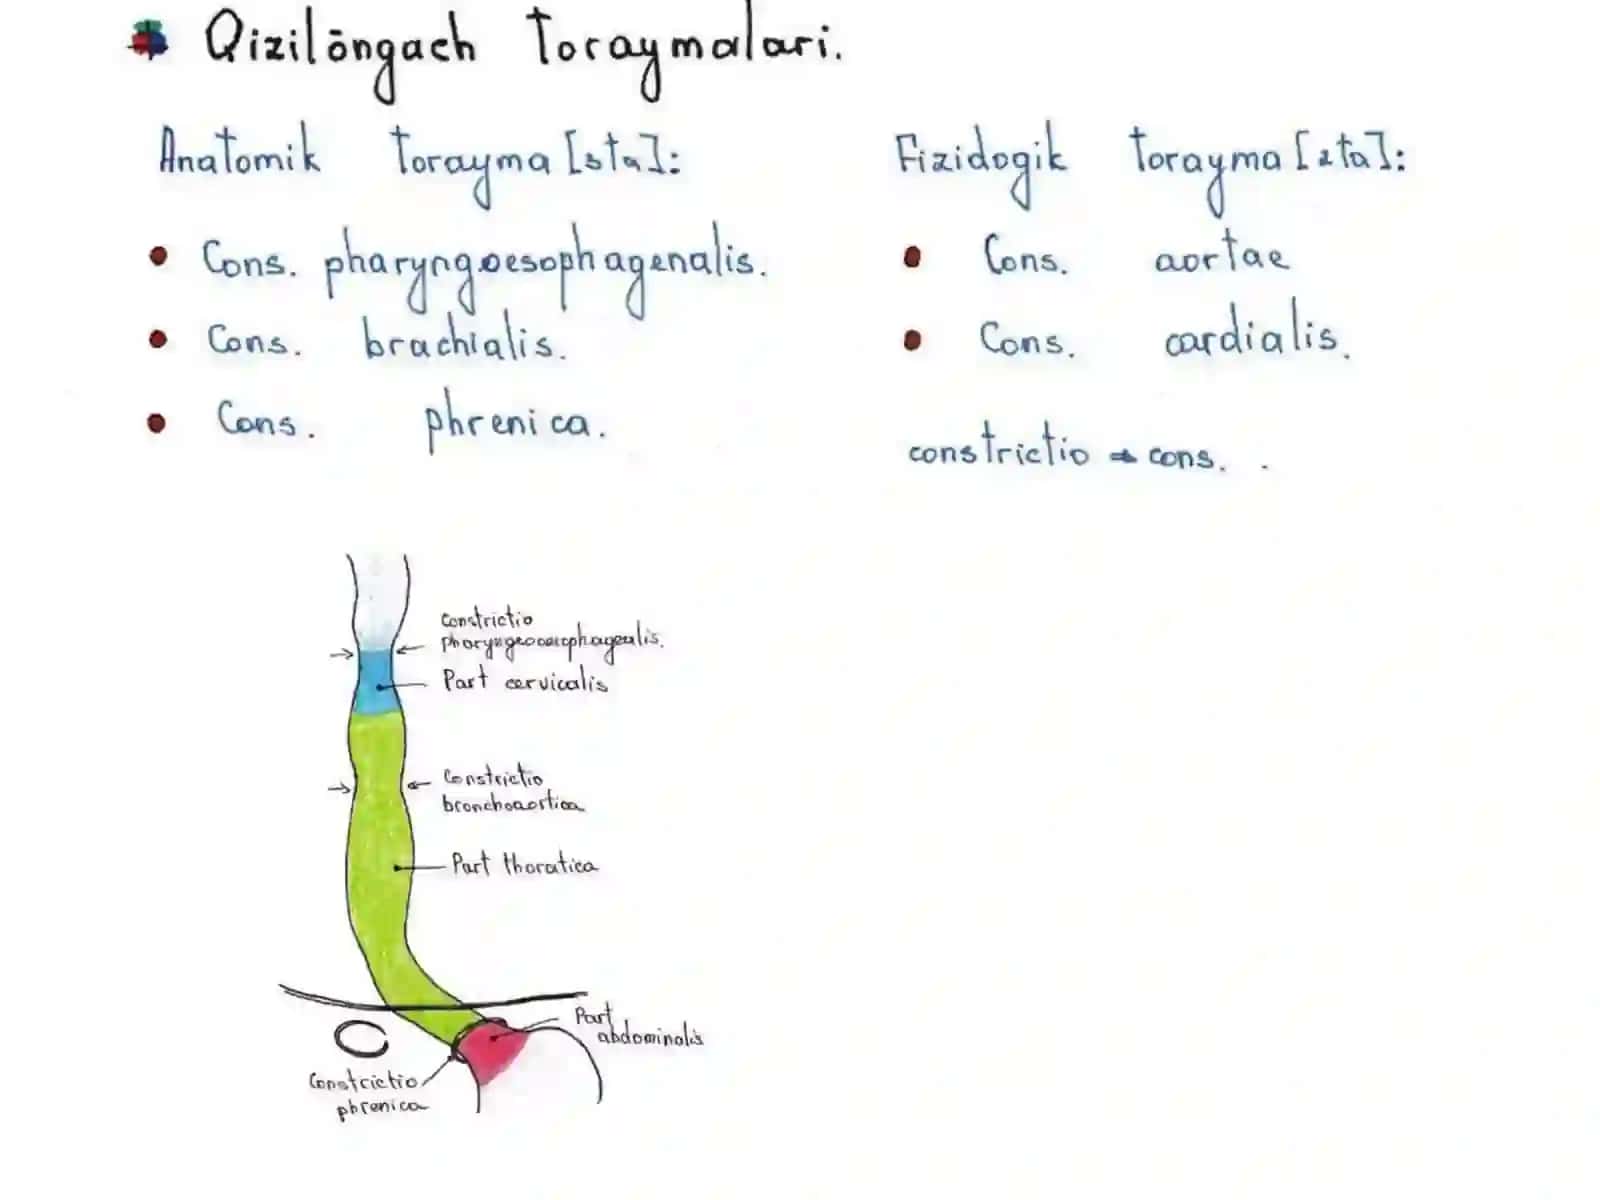 Qizilōngach Toraymalari.
Anatomik torayma [3ta]:
• Cons. pharyngoesophagenalis.
• Cons. brachialis.
• Cons. phrenica.
Fizidogik torayma [2ta]:
• Cons. aortae
• Cons. cardialis.
constrictio → cons. .
Constrictio
pharyngeooesophagealis.
Part cervicalis
Constrictio
bronchoaortica
Part thoratica
Part
abdominalis
Constrictio
phrenica